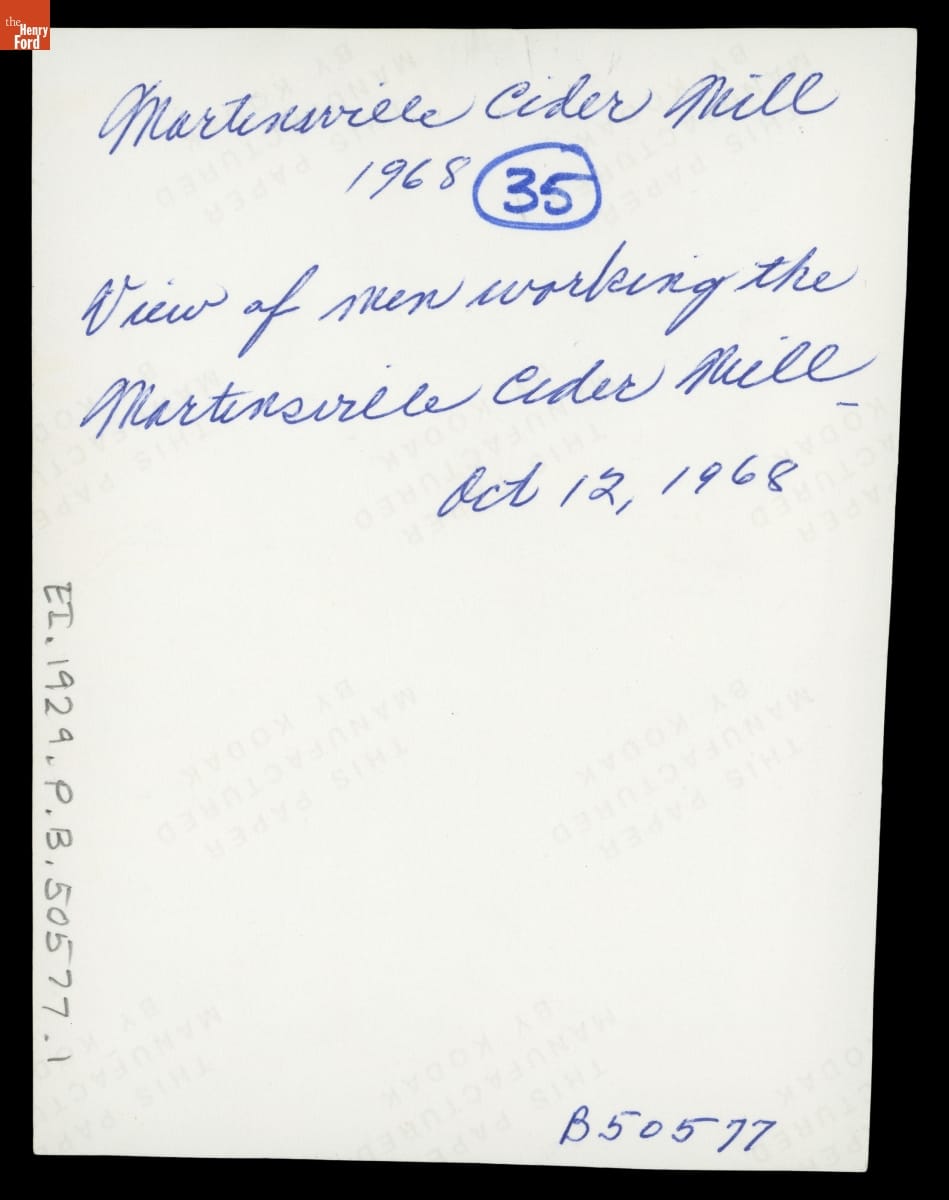 the
Henry
Ford
Martinsville Cider Mill
1968 35
View of men working the
Martinsville Cider Mill -
Oct 12, 1968
EI.1929.P.B.50577.1
THIS PAPER
MANUFACTURED
BY KODAK
B50577